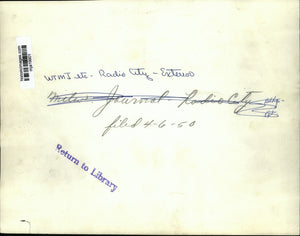 WTMJ etc - Radio City - Exterior
Milw. Journal - Radio City
filed 4-6-50
Return to Library